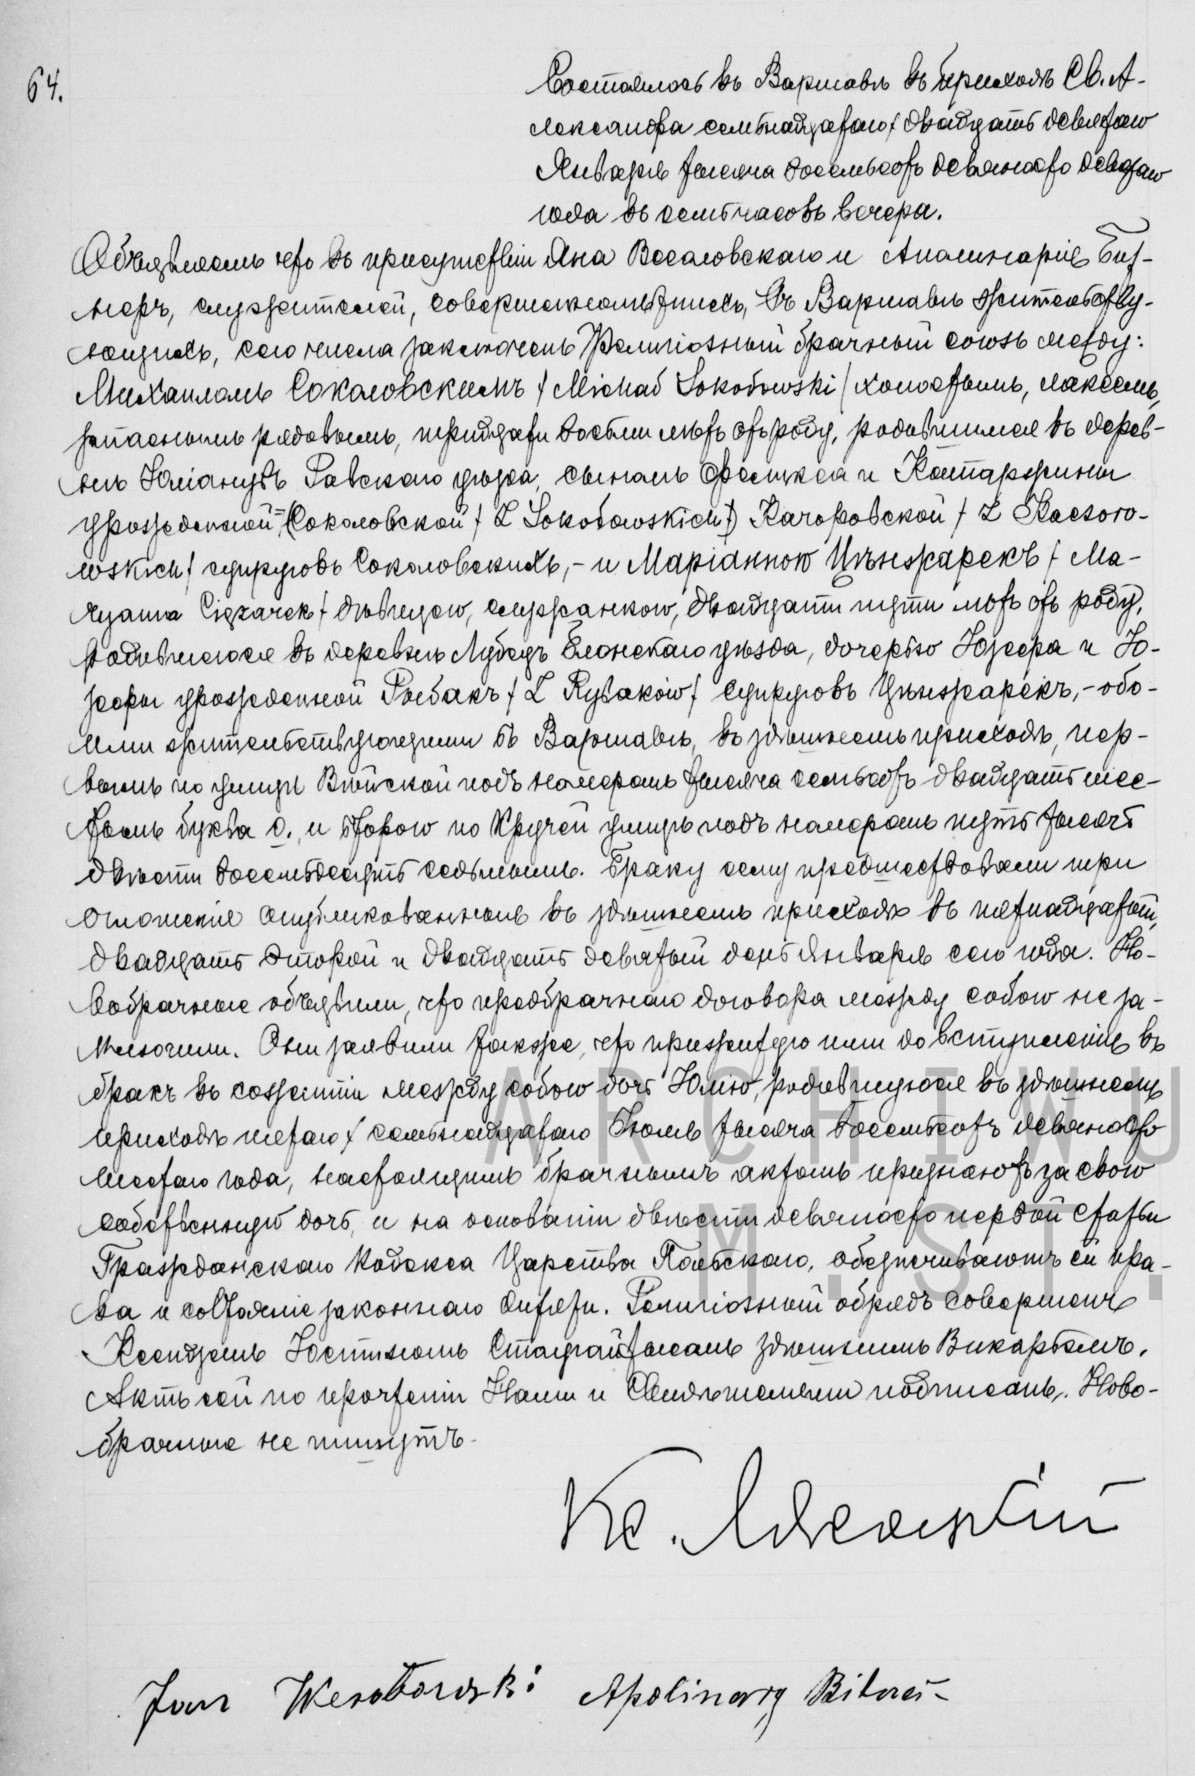 64.
Состоялось въ Варшавѣ въ приходѣ Св. А-
лександра семнадцатаго / двадцать девятаго
Января тысяча восемьсотъ девяносто девятаго
года въ семь часовъ вечера.
Объявляемъ что въ присутствіи Яна Весоловскаго и Аполинарія Бит-
неръ, служителей, совершеннолѣтнихъ, въ Варшавѣ жительству-
ющихъ, сего числа заключенъ Религіозный брачный союзъ между:
Михаиломъ Соколовскимъ / Michał Sokołowski / холостымъ, лакеемъ,
запаснымъ рядовымъ, тридцати восьми лѣтъ отъ роду, родившимся въ дерев-
нѣ Юліанувъ Равскаго уѣзда, сыномъ Феликса и Катаржины
урожденной Соколовской / Z Sokołowskich / Качоровской / Z Kaczoro-
wskich / супруговъ Соколовскихъ, - и Маріанною Цѣнжарекъ / Ma-
ryanna Ciężarek / дѣвицею, служанкою, двадцати пяти лѣтъ отъ роду,
родившеюся въ деревнѣ Блонскаго уѣзда, дочерью Юзефа и Ю-
зефы урожденной Рыбакъ / Z Rybaków / супруговъ Цѣнжарекъ, - обо-
ими жительствующими въ Варшавѣ, въ здѣшнемъ приходѣ, пер-
вымъ по улицѣ Вейской подъ номеромъ тысяча семьсотъ двадцать шес-
тымъ буква с., и второю по Кручей улицѣ подъ номеромъ пять тысячъ
двѣсти восемьдесятъ седьмымъ. Браку сему предшествовали три
оглашенія опубликованныя въ здѣшнемъ приходѣ въ пятнадцатый,
двадцать второй и двадцать девятый день Января сего года. Но-
вобрачные объявили, что предбрачнаго договора между собою не за-
ключили. Они заявили также, что прижитую ими до вступленія въ
бракъ въ сожитіи между собою дочь Юлію, родившуюся въ здѣшнемъ
приходѣ пятаго / семнадцатаго Іюля тысяча восемьсотъ девяносто
шестаго года, настоящимъ брачнымъ актомъ признаютъ за свою
собственную дочь, и на основаніи двѣсти девяносто первой статьи
Гражданскаго Кодекса Царства Польскаго, обезпечиваютъ ей пра-
ва и состояніе законнаго дитяти. Религіозный обрядъ совершенъ
Ксендзомъ здѣшнимъ Викаріемъ.
Актъ сей по прочтеніи Нами и Свидѣтелями подписанъ. Ново-
брачные не пишутъ.
Кс.
Jan Wesołowski Apolinary Bitner
ARCHIWU
M . S T .